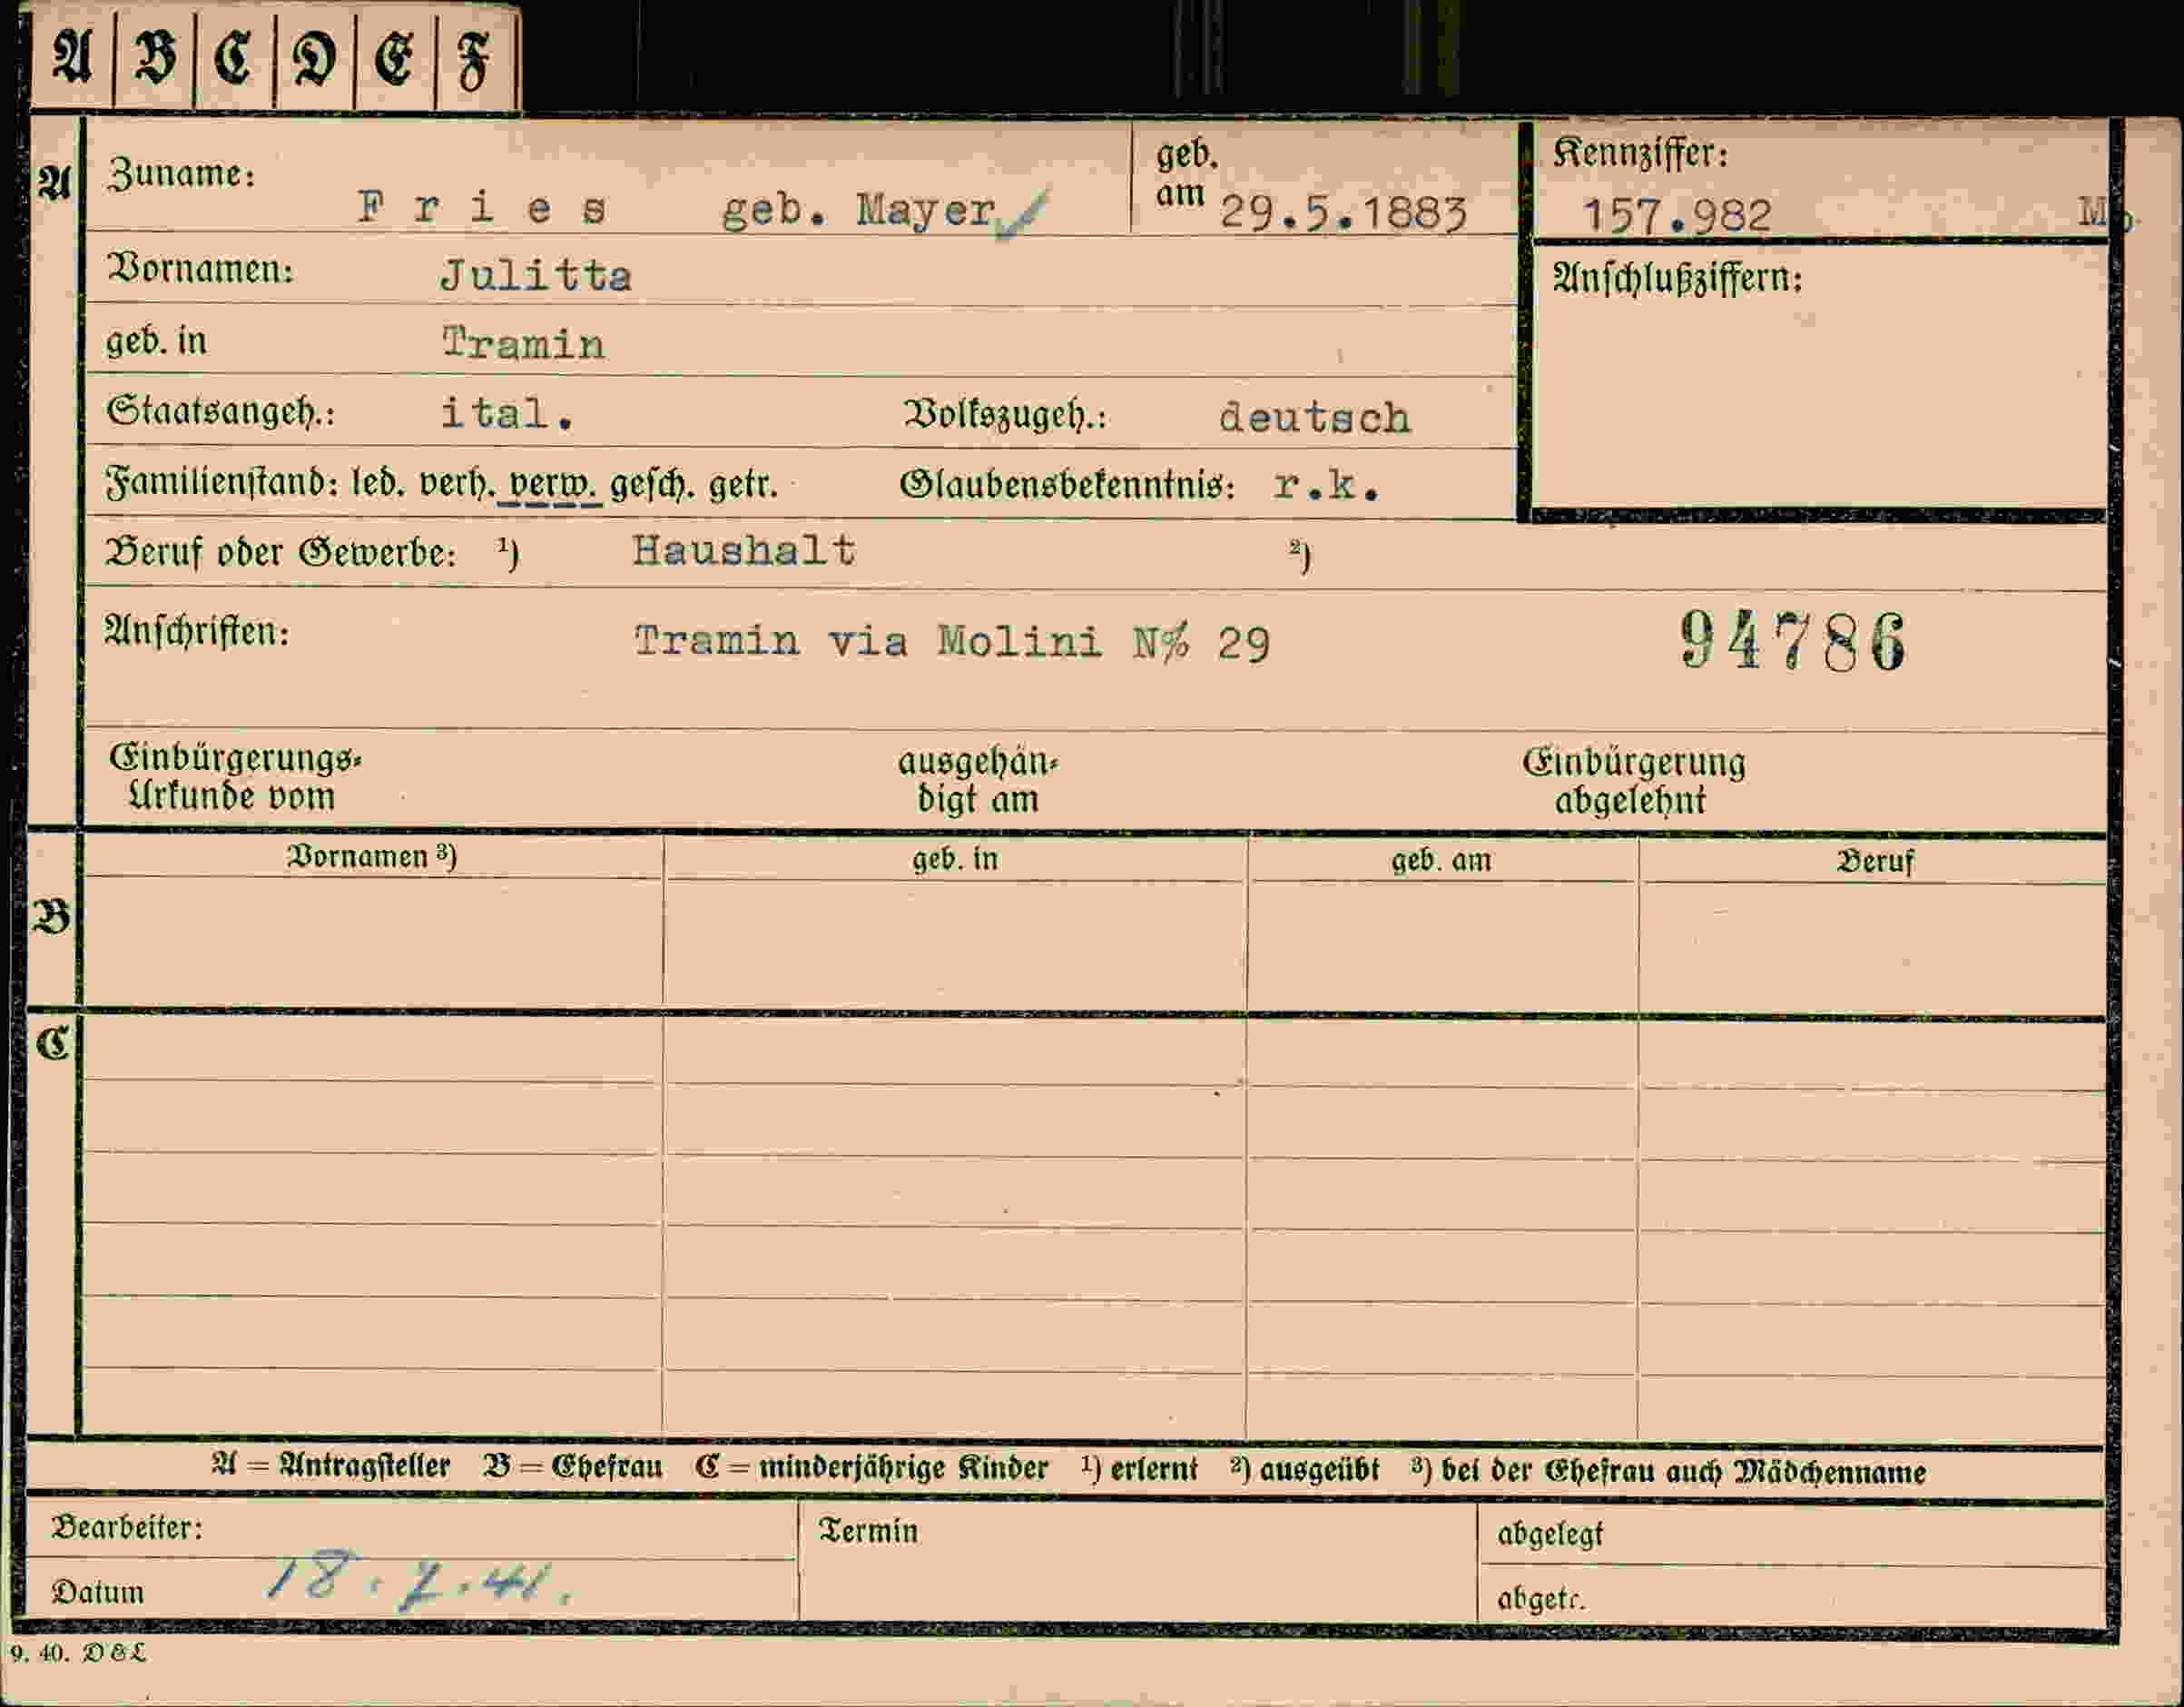 A B C D E F
A Zuname: Fries geb. Mayer geb. am 29.5.1883 Kennziffer: 157.982
Vornamen: Julitta Anschlußziffern:
geb. in Tramin
Staatsangeh.: ital. Volkszugeh.: deutsch
Familienstand: led. verh. verw. gesch. getr. Glaubensbekenntnis: r.k.
Beruf oder Gewerbe: ¹) Haushalt ²)
Anschriften: Tramin via Molini N% 29 94786
Einbürgerungs- ausgehän- Einbürgerung
Urkunde vom digt am abgelehnt
Vornamen ³) geb. in geb. am Beruf
B
C
A = Antragsteller B = Ehefrau C = minderjährige Kinder ¹) erlernt ²) ausgeübt ³) bei der Ehefrau auch Mädchenname
Bearbeiter: Termin abgelegt
Datum 18.7.41. abgetr.
9. 40. DEL